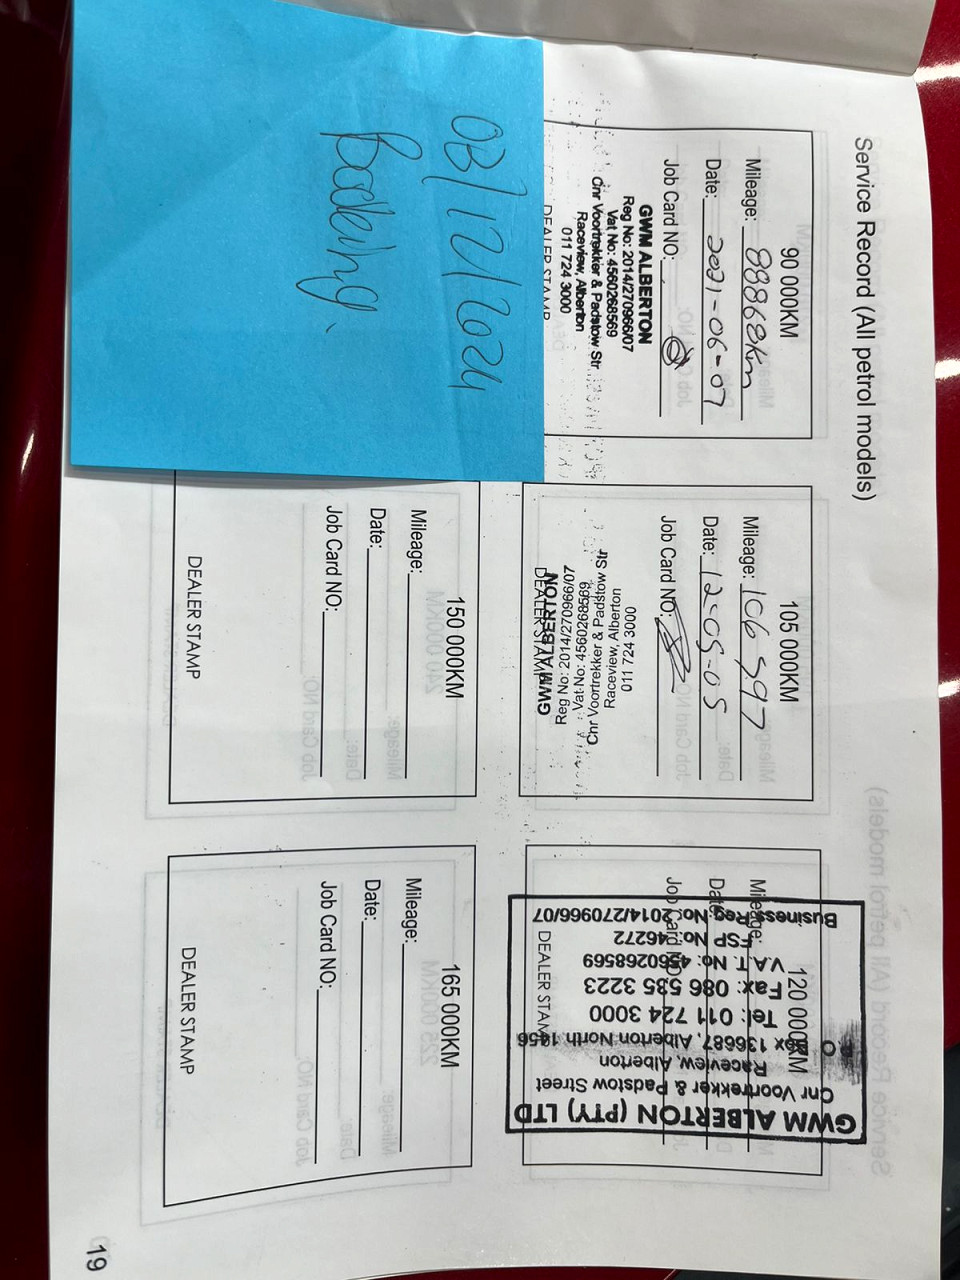 Service Record (All petrol models)
90 000KM
Mileage: 88868km
Date: 2021-06-07
Job Card NO:
GWM ALBERTON
Reg No: 2014/270966/07
Vat No: 4560268569
Cnr Voortrekker & Padstow Str
Raceview, Alberton
011 724 3000
DEALER STAMP
105 000KM
Mileage: 106 597
Date: 12-05-05
Job Card NO:
011 724 3000
Raceview, Alberton
Cnr Voortrekker & Padstow Str
Vat No: 4560268569
Reg No: 2014/270966/07
GWM ALBERTON
DEALER STAMP
120 000KM
Mileage:
Date:
Job Card NO:
DEALER STAMP
GWM ALBERTON (PTY) LTD
Cnr Voortrekker & Padstow Street
Raceview, Alberton
Box 136687, Alberton North 1456
Tel: 011 724 3000
Fax: 086 585 3223
V.A.T. No: 4560268569
FSP No: 46272
Business Reg No: 2014/270966/07
03/12/2024
Booking
150 000KM
Mileage:
Date:
Job Card NO:
DEALER STAMP
165 000KM
Mileage:
Date:
Job Card NO:
DEALER STAMP
19